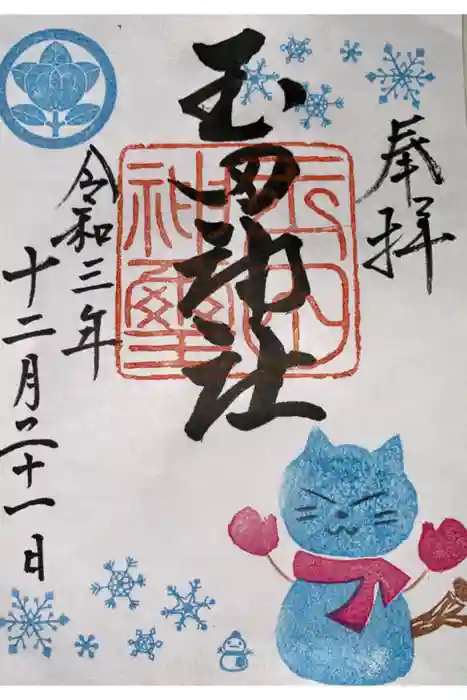 奉拝
玉田神社
玉田神璽
令和三年
十二月二十一日